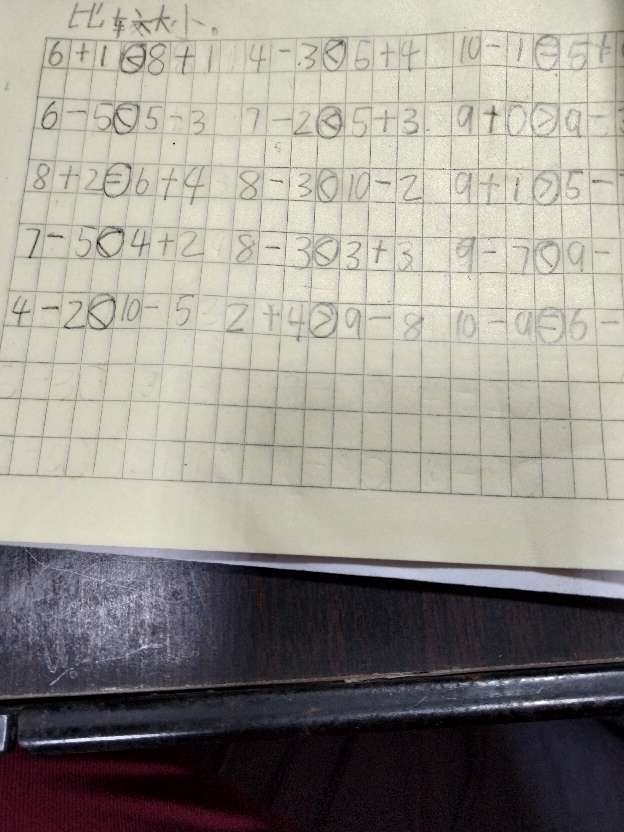 比较大小。
6+1<8+1 4-3<6+4 10-1=5+
6-5<5-3 7-2<5+3 9+0>9-
8+2=6+4 8-3<10-2 9+1>5-
7-5<4+2 8-3<3+3 9-7<9-
4-2<10-5 2+4>9-8 10-9=6-